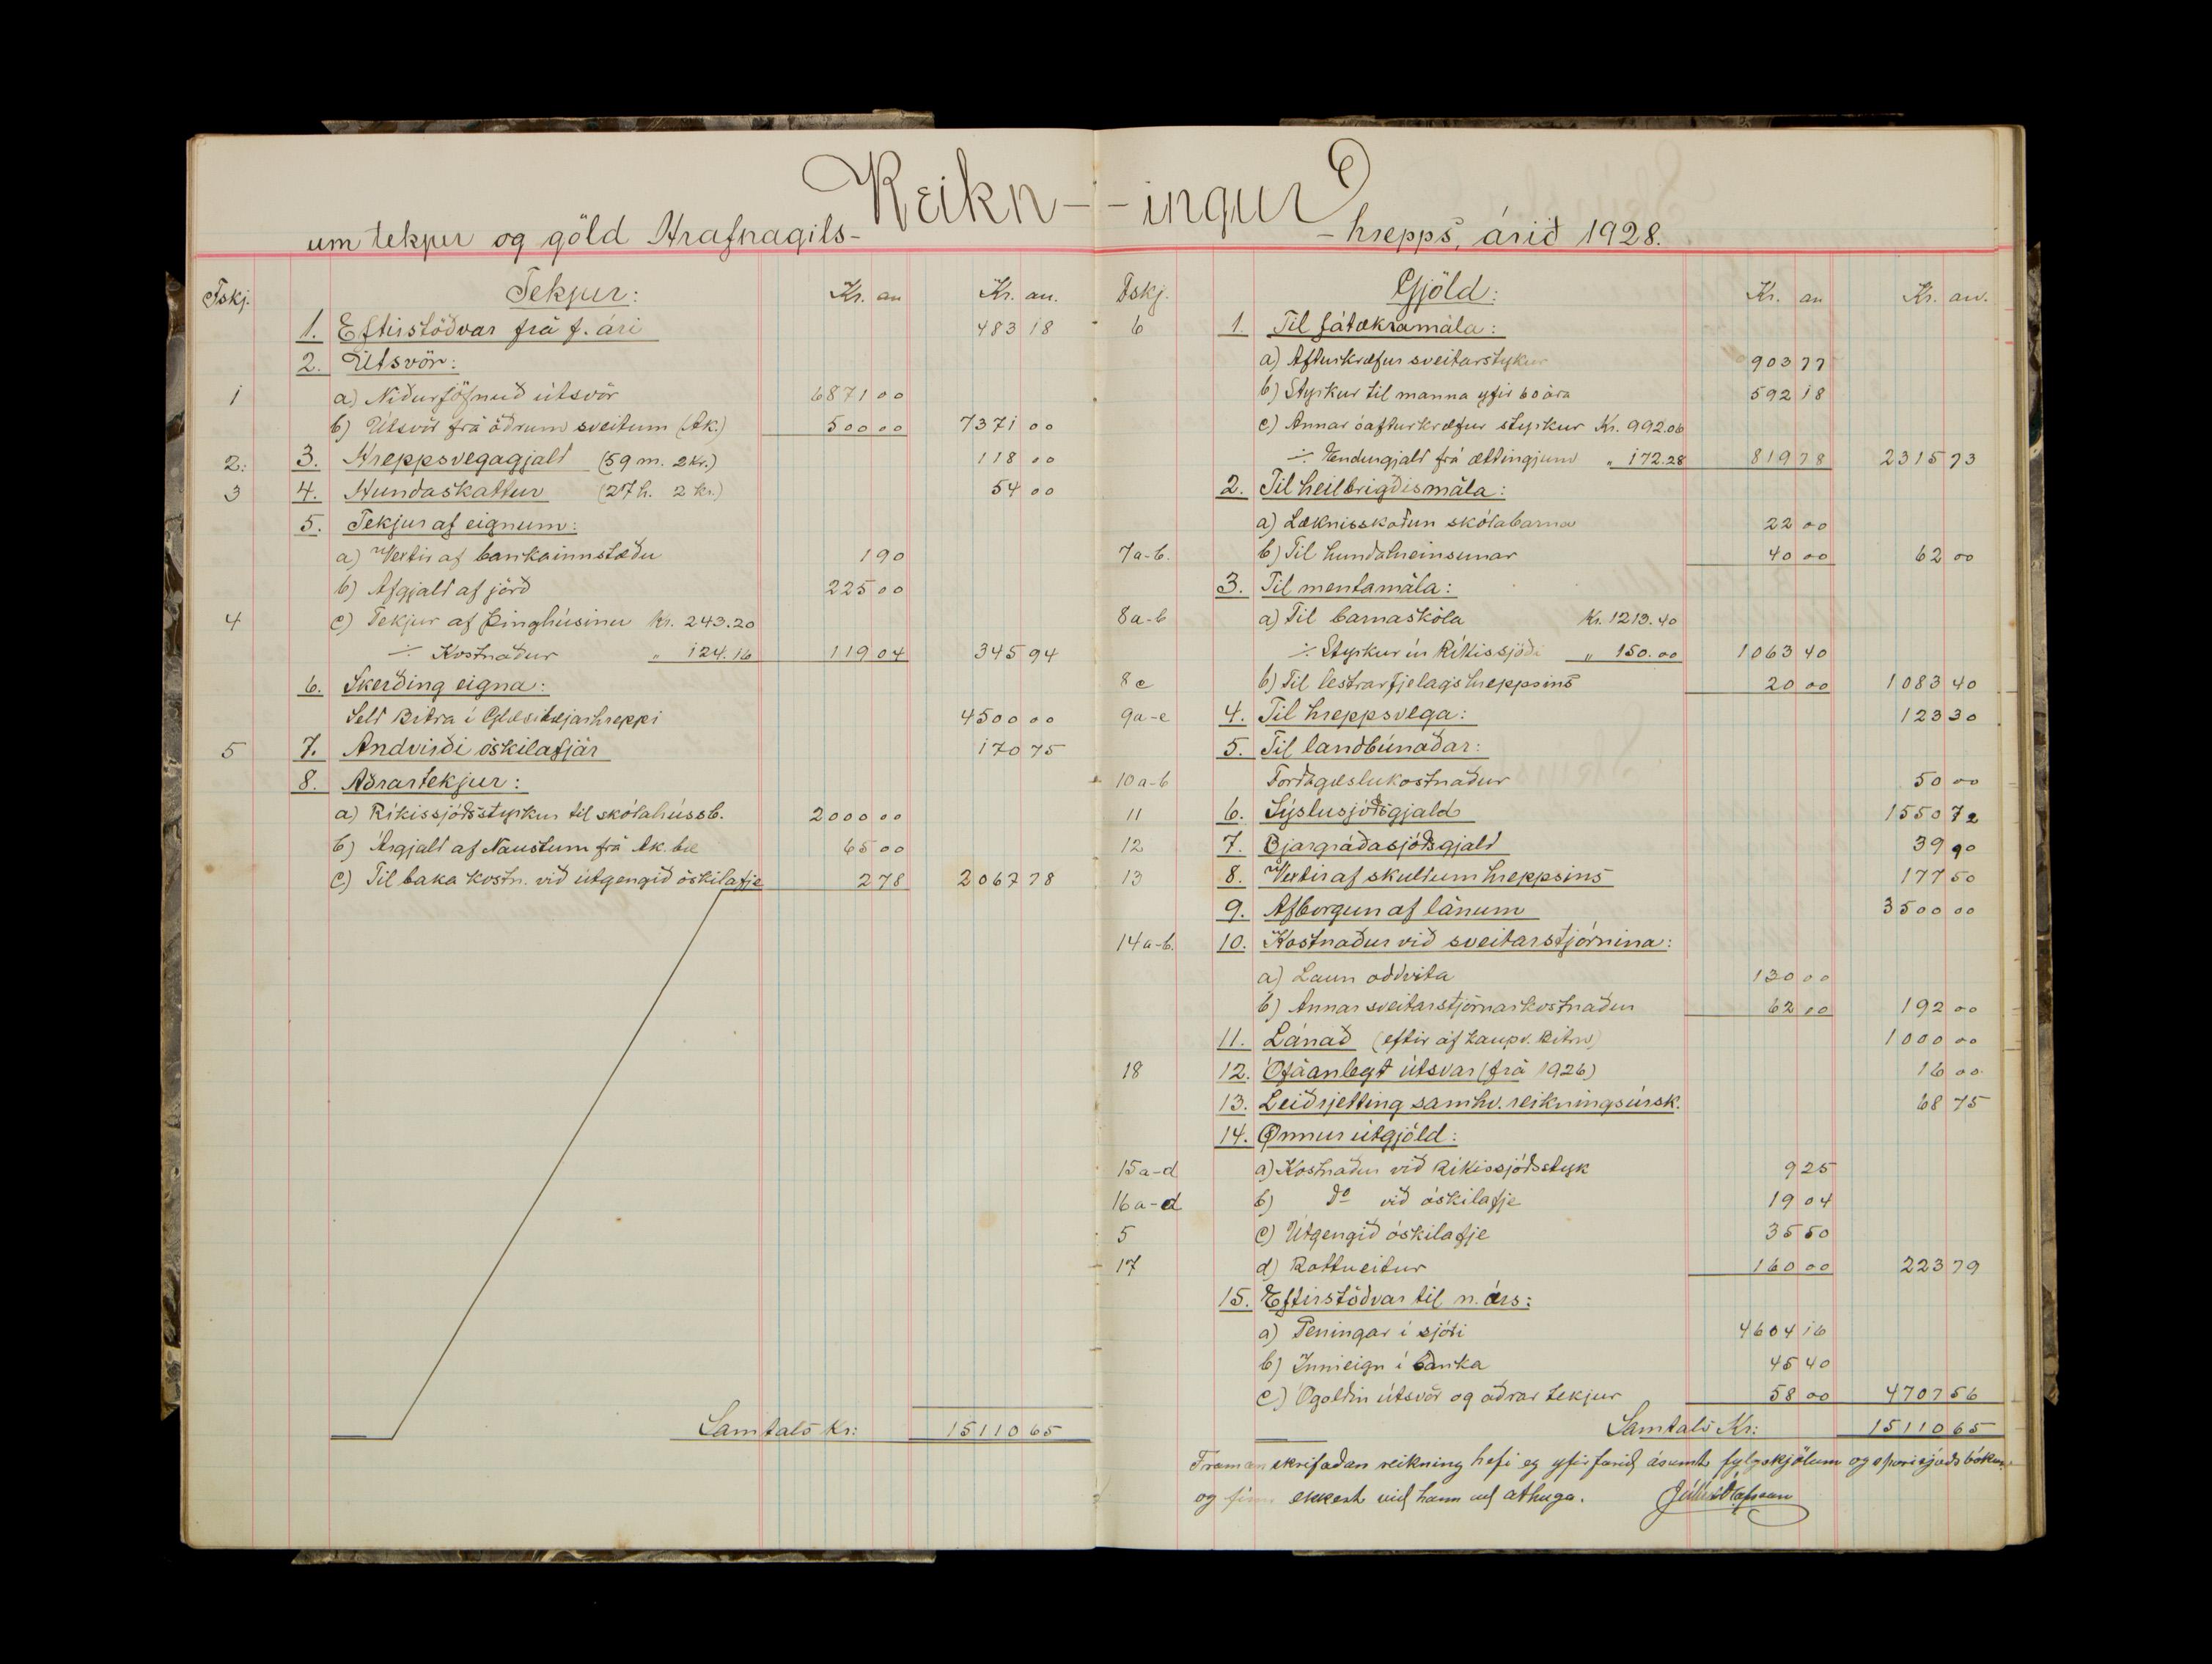 Reikn- -ingur
um tekjur og göld Hrafnagils- -hrepps, árið 1928.
Fskj. Tekjur: Kr. au Kr. au.
1. Eftirstöðvar frá f. ári 483 18
2. Útsvör:
1 a) Niðurjöfnuð útsvör 6871 00
b) Útsvör frá öðrum sveitum (Ak.) 500 00 7371 00
2. 3. Hreppsvegagjald (59 m. 2 kr.) 118 00
3 4. Hundaskattur (27 h. 2 kr.) 54 00
5. Tekjur af eignum:
a) Vextir af bankainnstæðu 1 90
b) Afgjald af jörð 225 00
4 c) Tekjur af þinghúsinu Kr. 243.20
÷ Kostnaður " 124.16 119 04 345 94
6. Skerðing eigna:
Seld Bitra í Glæsibæjarhreppi 4500 00
5 7. Andvirði óskilafjár 170 75
8. Aðrartekjur:
a) Ríkissjóðsstyrkur til skólahússb. 2000 00
b) Árgjald af Naustum frá Ak.bæ 65 00
c) Til baka kostn. við útgengið óskilafje 2 78 2067 78
Samtals Kr: 15110 65
Fskj. Gjöld: Kr. au Kr. au.
6 1. Til fátækramála:
a) Afturkræfur sveitarstykur 903 77
b) Styrkur til manna yfir 60 ára 592 18
c) Annar óafturkræfur styrkur Kr. 992.06
÷ Endurgjald frá ættingjum " 172.28 819 78 2315 73
2. Til heilbrigðismála:
a) Læknisskoðun skólabarna 22 00
7a-b. b) Til hundahreinsunar 40 00 62 00
3. Til mentamála:
8a-b a) Til barnaskóla Kr. 1213.40
÷ Styrkur úr Ríkissjóði " 150.00 1063 40
8c b) Til lestrarfjelags hreppsins 20 00 1083 40
9a-e 4. Til hreppsvega: 123 30
5. Til landbúnaðar:
10a-b Forðagæslukostnaður 50 00
11 6. Sýslusjóðsgjald 1550 72
12 7. Bjargráðasjóðsgjald 39 90
13 8. Vextir af skuldum hreppsins 177 50
9. Afborgun af lánum 3500 00
14a-b. 10. Kostnaður við sveitarstjórnina:
a) Laun oddvita 130 00
b) Annar sveitarstjórnarkostnaður 62 00 192 00
11. Lánað (eftir af kaupv. Bitru) 1000 00
18 12. Ófáanlegt útsvar (frá 1926) 16 00
13. Leiðrjetting samhv. reikningsúrsk. 68 75
14. Önnur útgjöld:
15a-d a) Kostnaður við Ríkissjóðsstyk 9 25
16a-d b) do við óskilafje 19 04
5 c) Útgengið óskilafje 35 50
17 d) Rottueitur 160 00 223 79
15. Eftirstöðvar til n. árs:
a) Peningar í sjóði 4604 16
b) Innieign í banka 45 40
c) Ógoldin útsvör og aðrar tekjur 58 00 4707 56
Samtals Kr: 15110 65
Framanskrifaðan reikning hefi eg yfirfarið ásamt fylgskjölum og sparisjóðsbókum
og finn ekkert við hann að athuga.